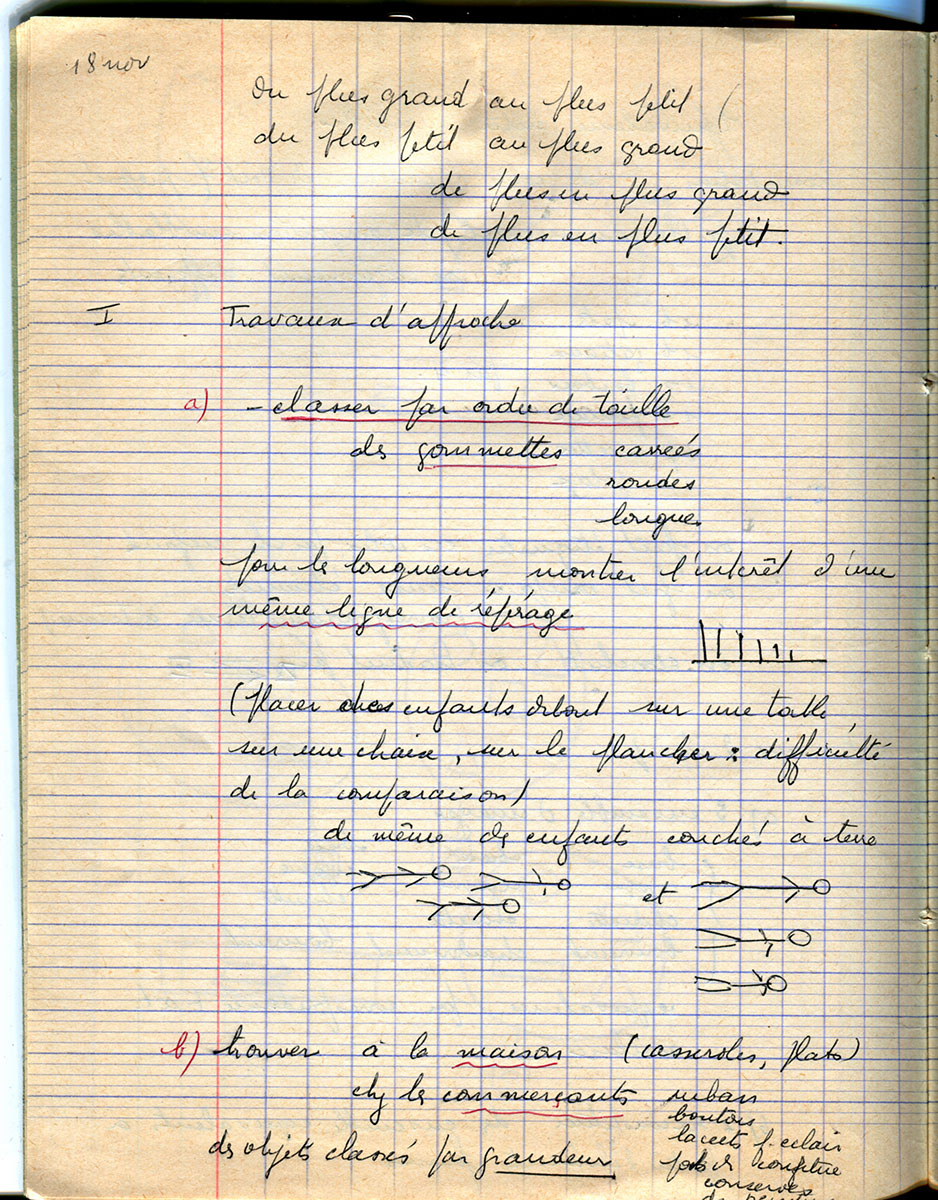 18 nov
du plus grand au plus petit (
du plus petit au plus grand
de plus en plus grand
de plus en plus petit.
I Travaux d'approche
a) - classer par ordre de taille
des gommettes carrées
rondes
longue.
pour les longueurs montrer l'intérêt d'une
même ligne de repérage
(Placer des enfants debout sur une table,
sur une chaise, sur le plancher : difficulté
de la comparaison)
de même des enfants couchés à terre
et
b) trouver à la maison (casseroles, plats)
chez les commerçants ruban
boutons
lacets f. eclair
des objets classés par grandeur pots de confiture
conserves